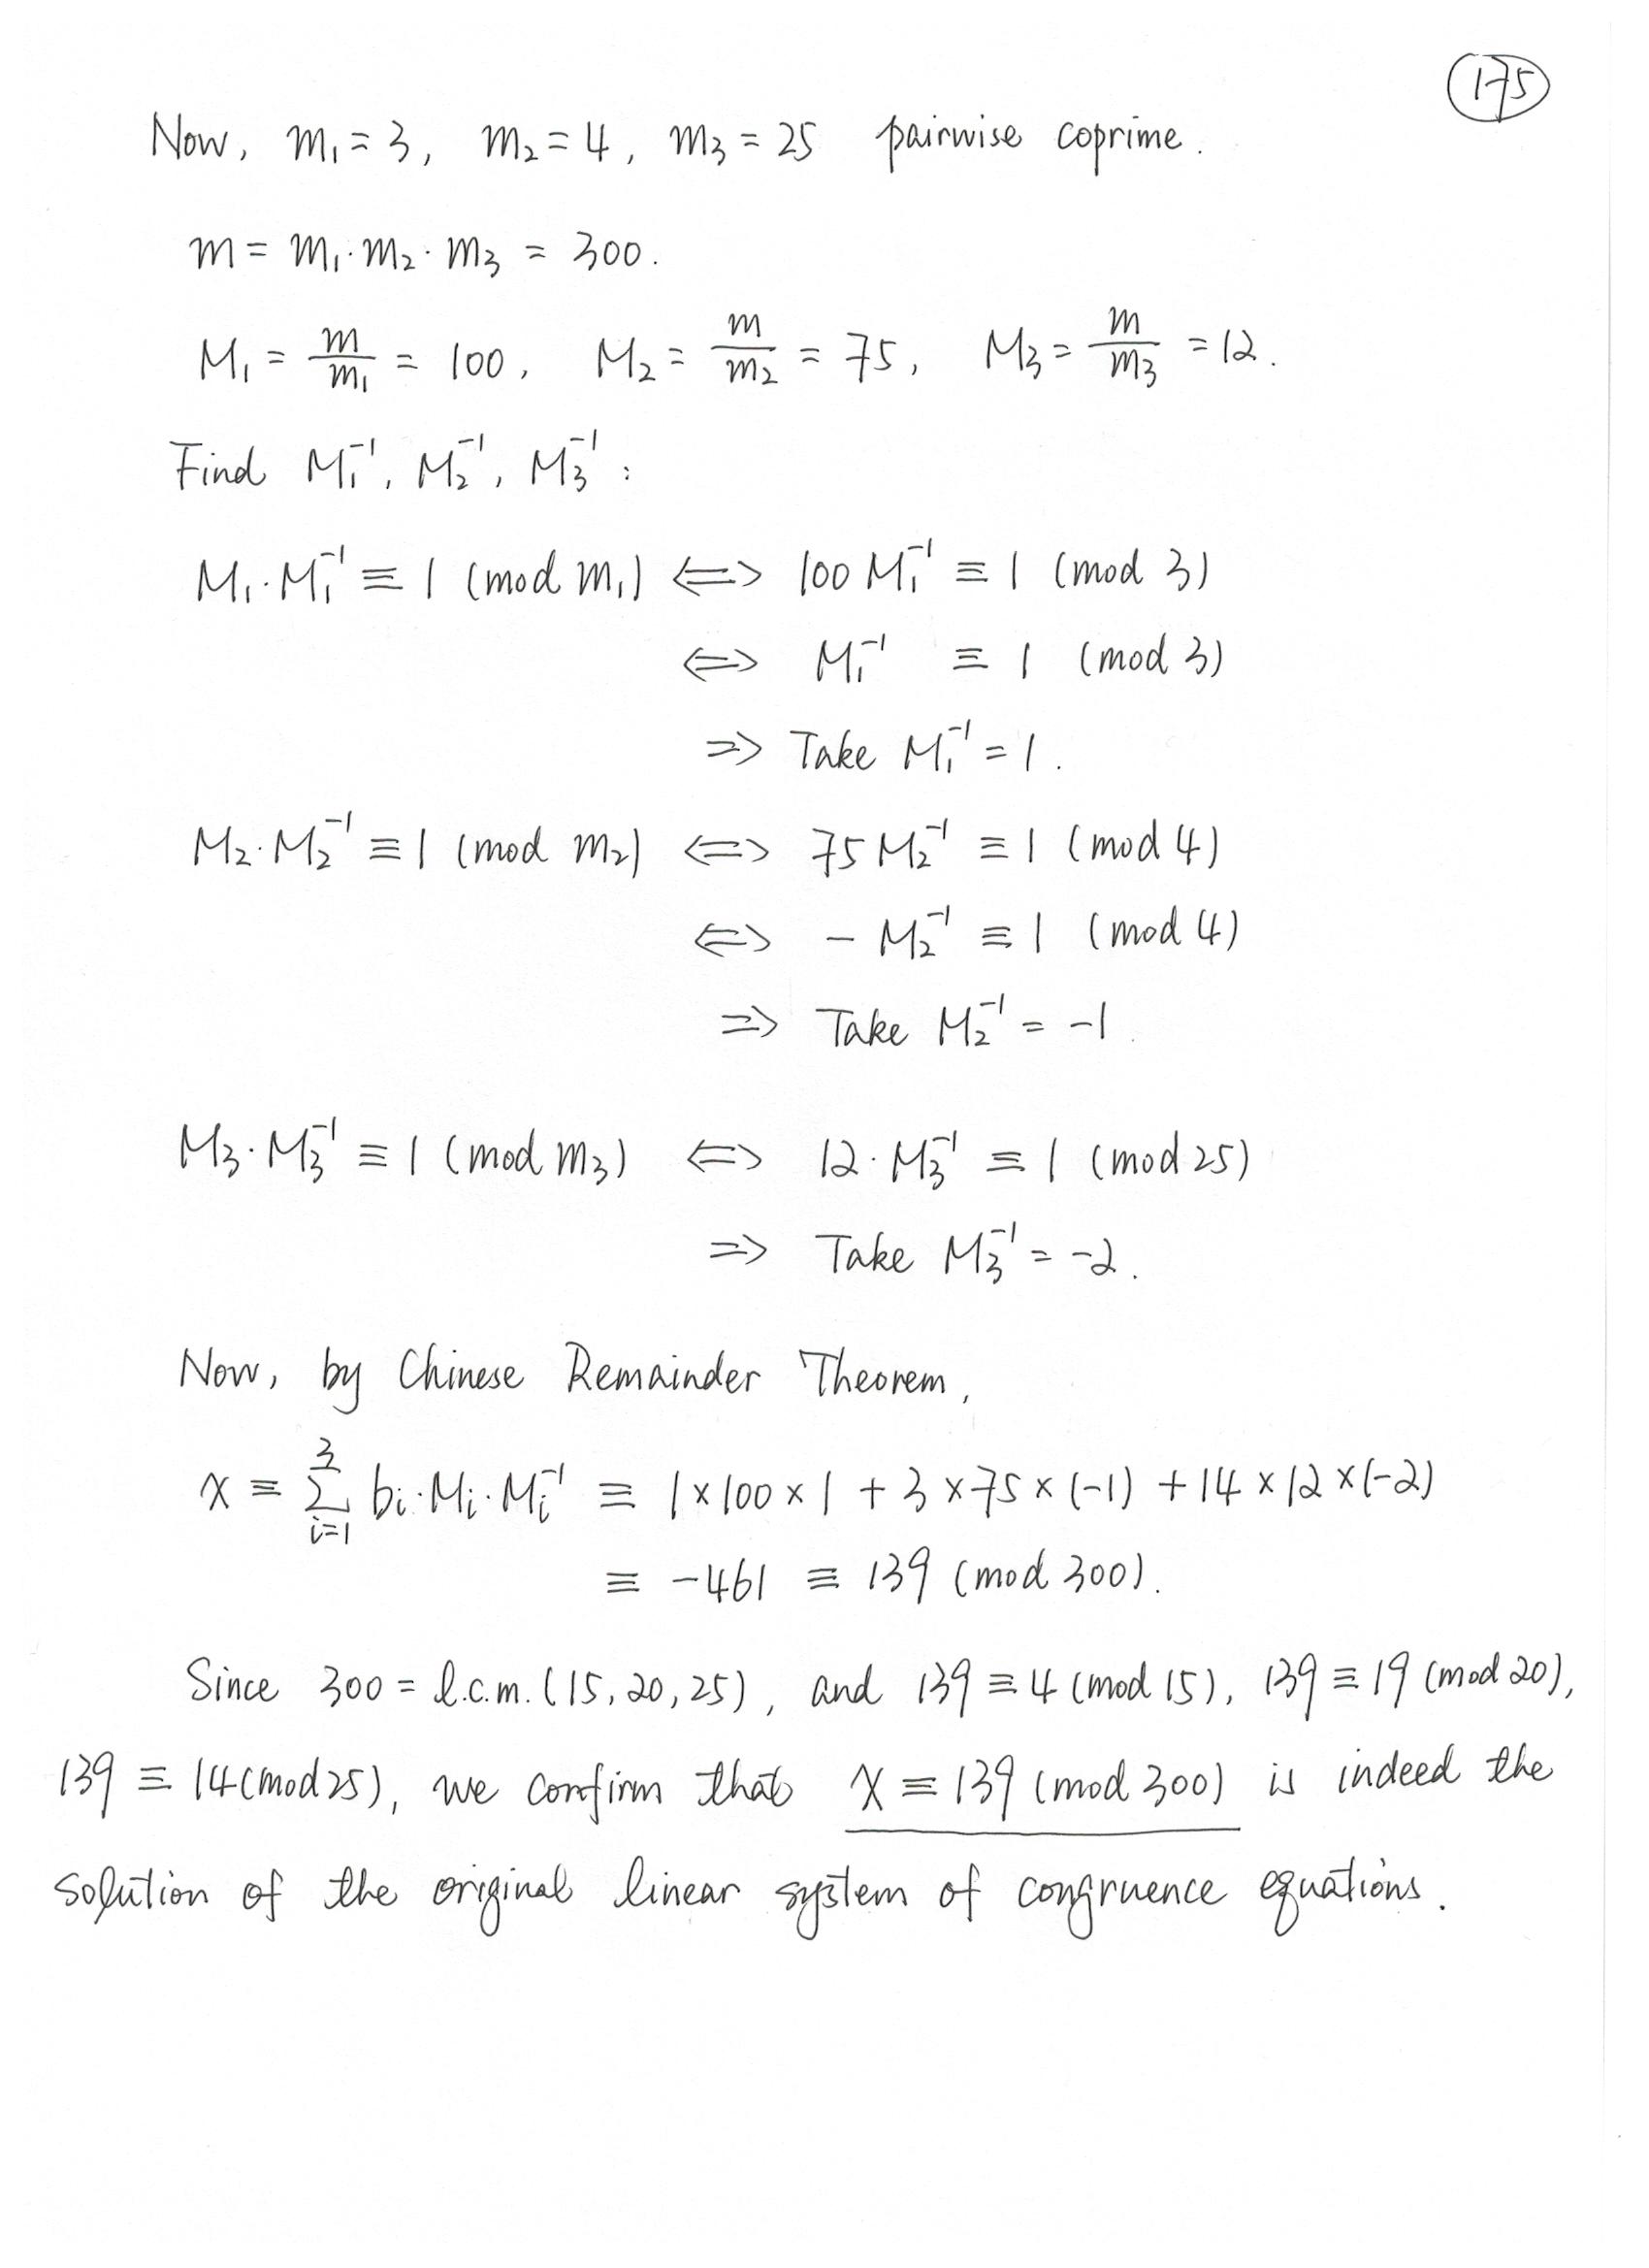 175
Now, m₁ = 3, m₂ = 4, m₃ = 25 pairwise coprime.
m = m₁·m₂·m₃ = 300.
M₁ = m/m₁ = 100, M₂ = m/m₂ = 75, M₃ = m/m₃ = 12.
Find M₁⁻¹, M₂⁻¹, M₃⁻¹ :
M₁·M₁⁻¹ ≡ 1 (mod m₁) <=> 100 M₁⁻¹ ≡ 1 (mod 3)
<=> M₁⁻¹ ≡ 1 (mod 3)
=> Take M₁⁻¹ = 1.
M₂·M₂⁻¹ ≡ 1 (mod m₂) <=> 75 M₂⁻¹ ≡ 1 (mod 4)
<=> - M₂⁻¹ ≡ 1 (mod 4)
=> Take M₂⁻¹ = -1.
M₃·M₃⁻¹ ≡ 1 (mod m₃) <=> 12·M₃⁻¹ ≡ 1 (mod 25)
=> Take M₃⁻¹ = -2.
Now, by Chinese Remainder Theorem,
x ≡ ∑_{i=1}^{3} bᵢ·Mᵢ·Mᵢ⁻¹ ≡ 1×100×1 + 3×75×(-1) + 14×12×(-2)
≡ -461 ≡ 139 (mod 300).
Since 300 = l.c.m. (15, 20, 25), and 139 ≡ 4 (mod 15), 139 ≡ 19 (mod 20),
139 ≡ 14 (mod 25), we confirm that x ≡ 139 (mod 300) is indeed the
solution of the original linear system of congruence equations.